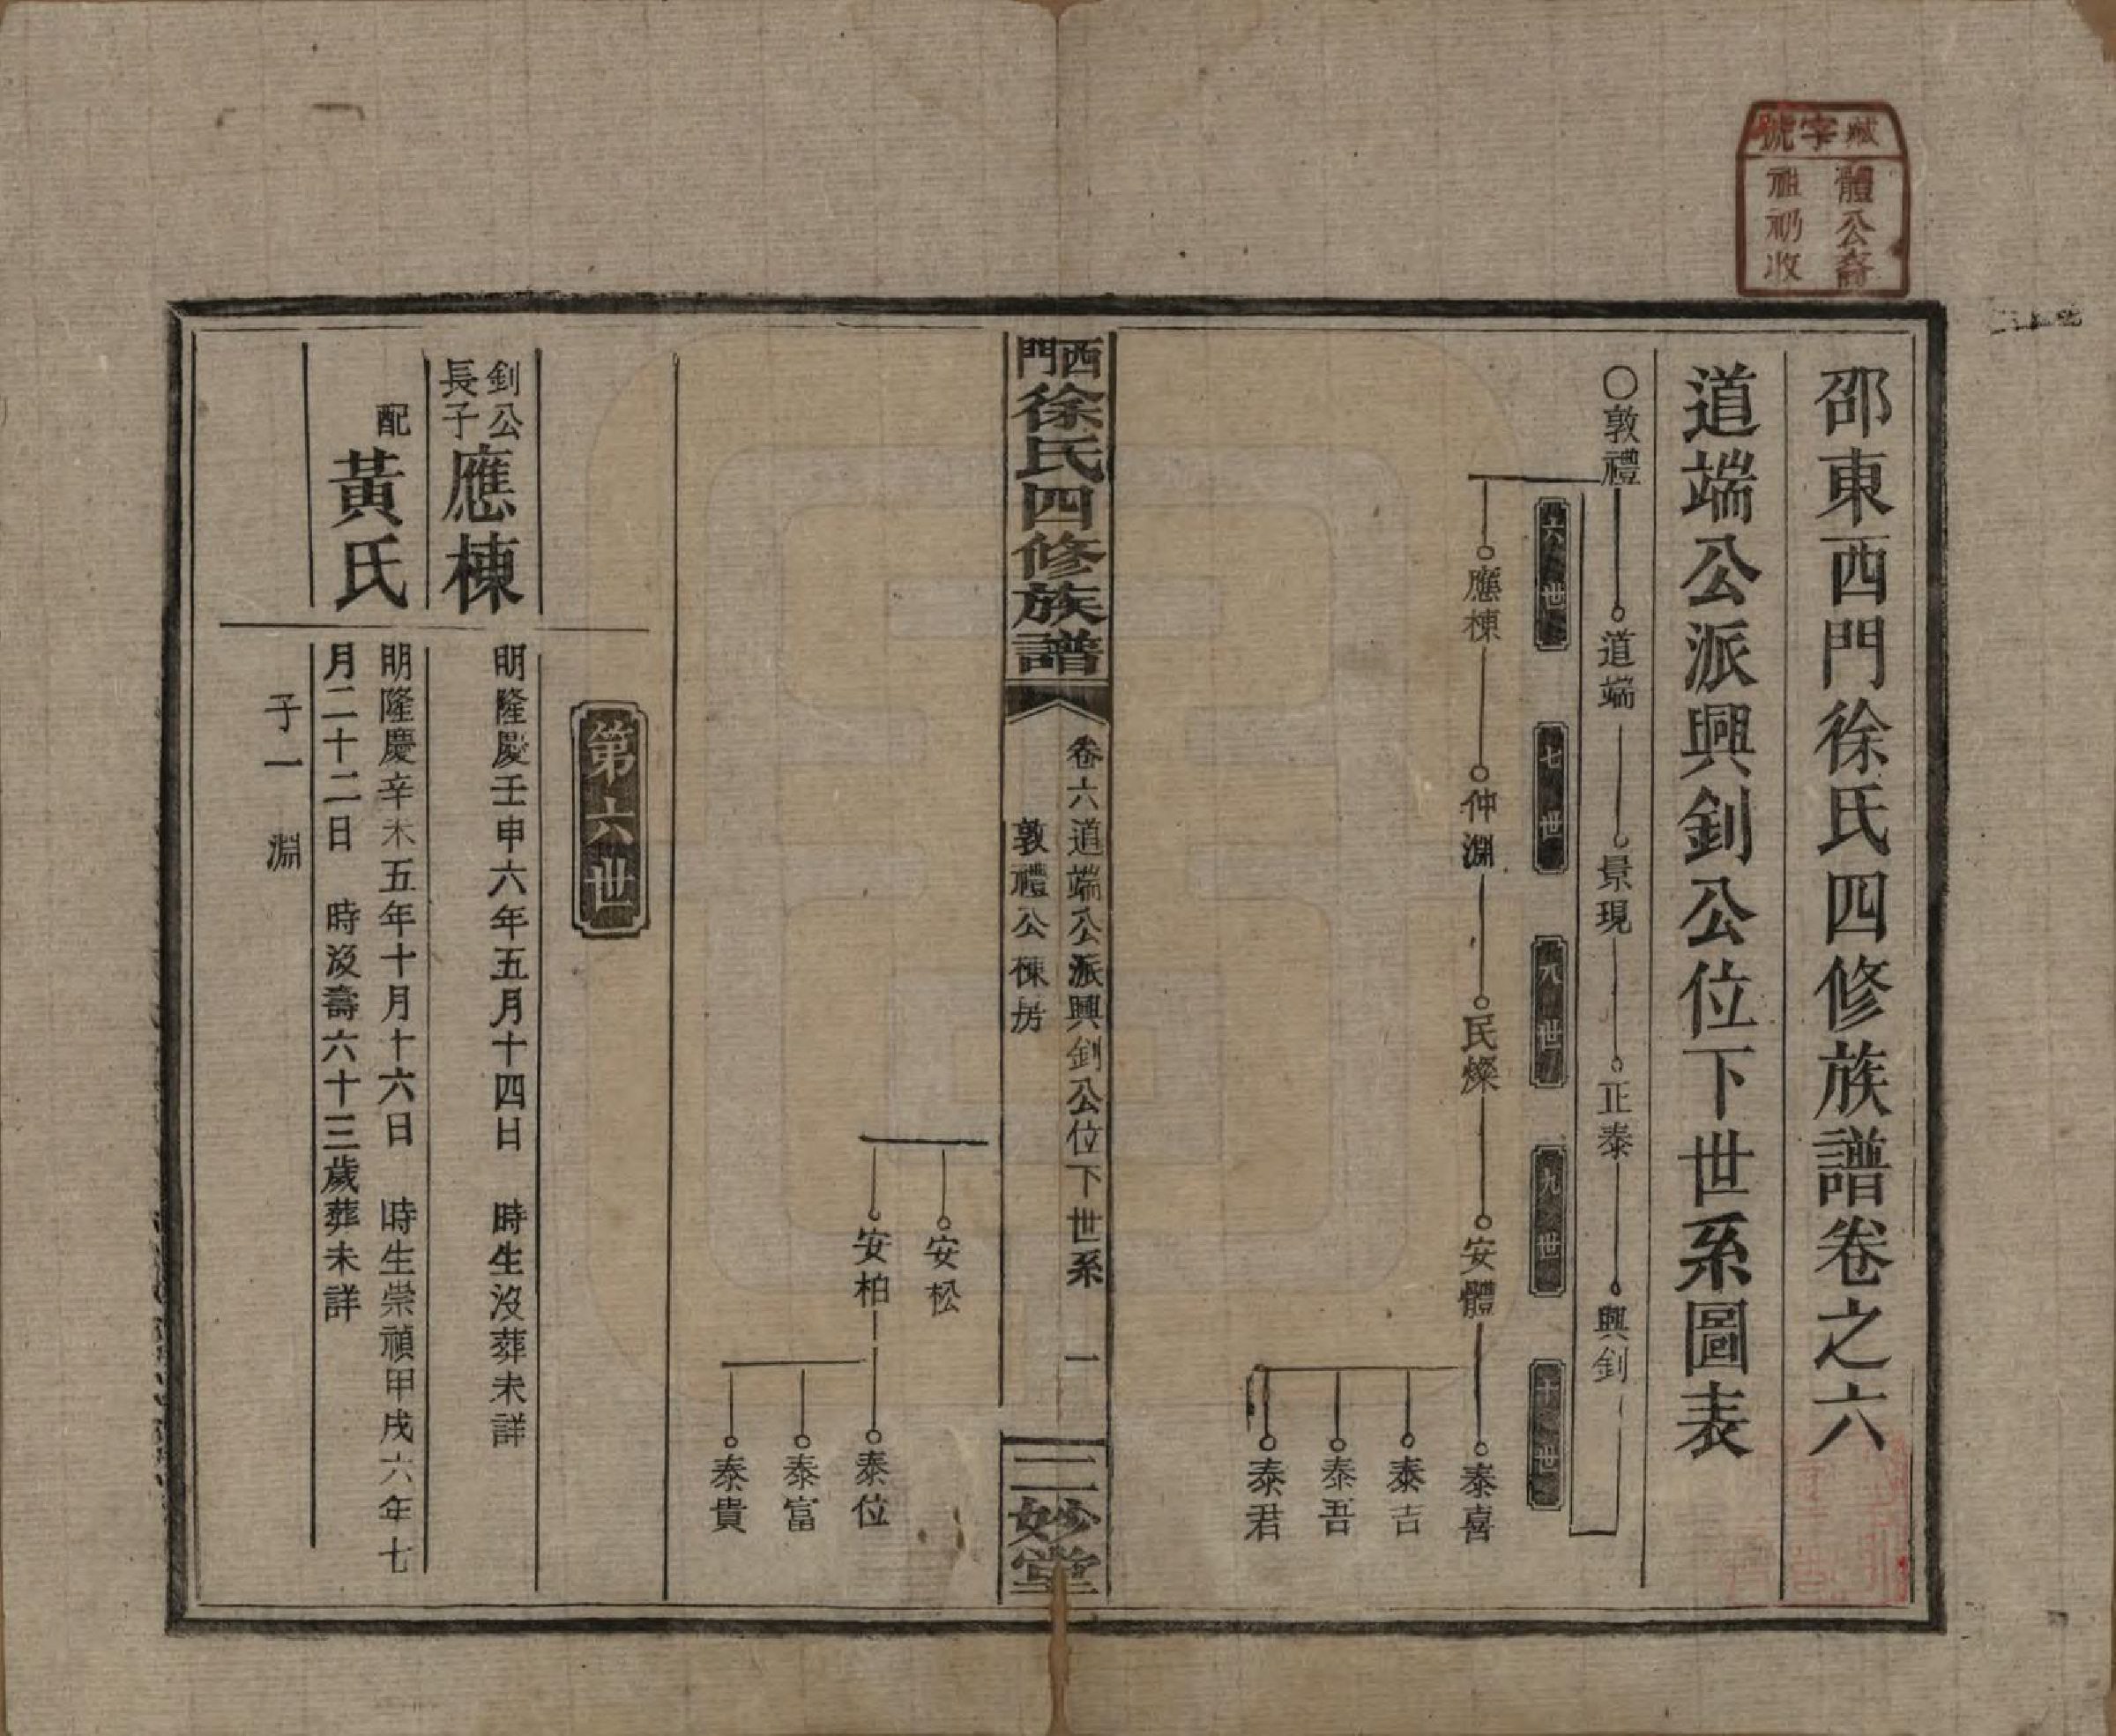 藏字號
體公裔
祖礽收
邵東西門徐氏四修族譜卷之六
道端公派興釗公位下世系圖表
〇敦禮 道端 景現 正泰 興釗
六世 七世 八世 九世 十世
應棟 仲淵 民燦 安體 泰喜
泰吉
泰吾
泰君
西門徐氏四修族譜
卷六道端公派興釗公位下世系 一
敦禮公棟房
三妙堂
安松
安柏 泰位
泰富
泰貴
第六世
釗公長子應棟
明隆慶壬申六年五月十四日 時生沒葬未詳
配黃氏
明隆慶辛未五年十月十六日 時生崇禎甲戌六年七
月二十二日 時沒壽六十三歲葬未詳
子一 淵